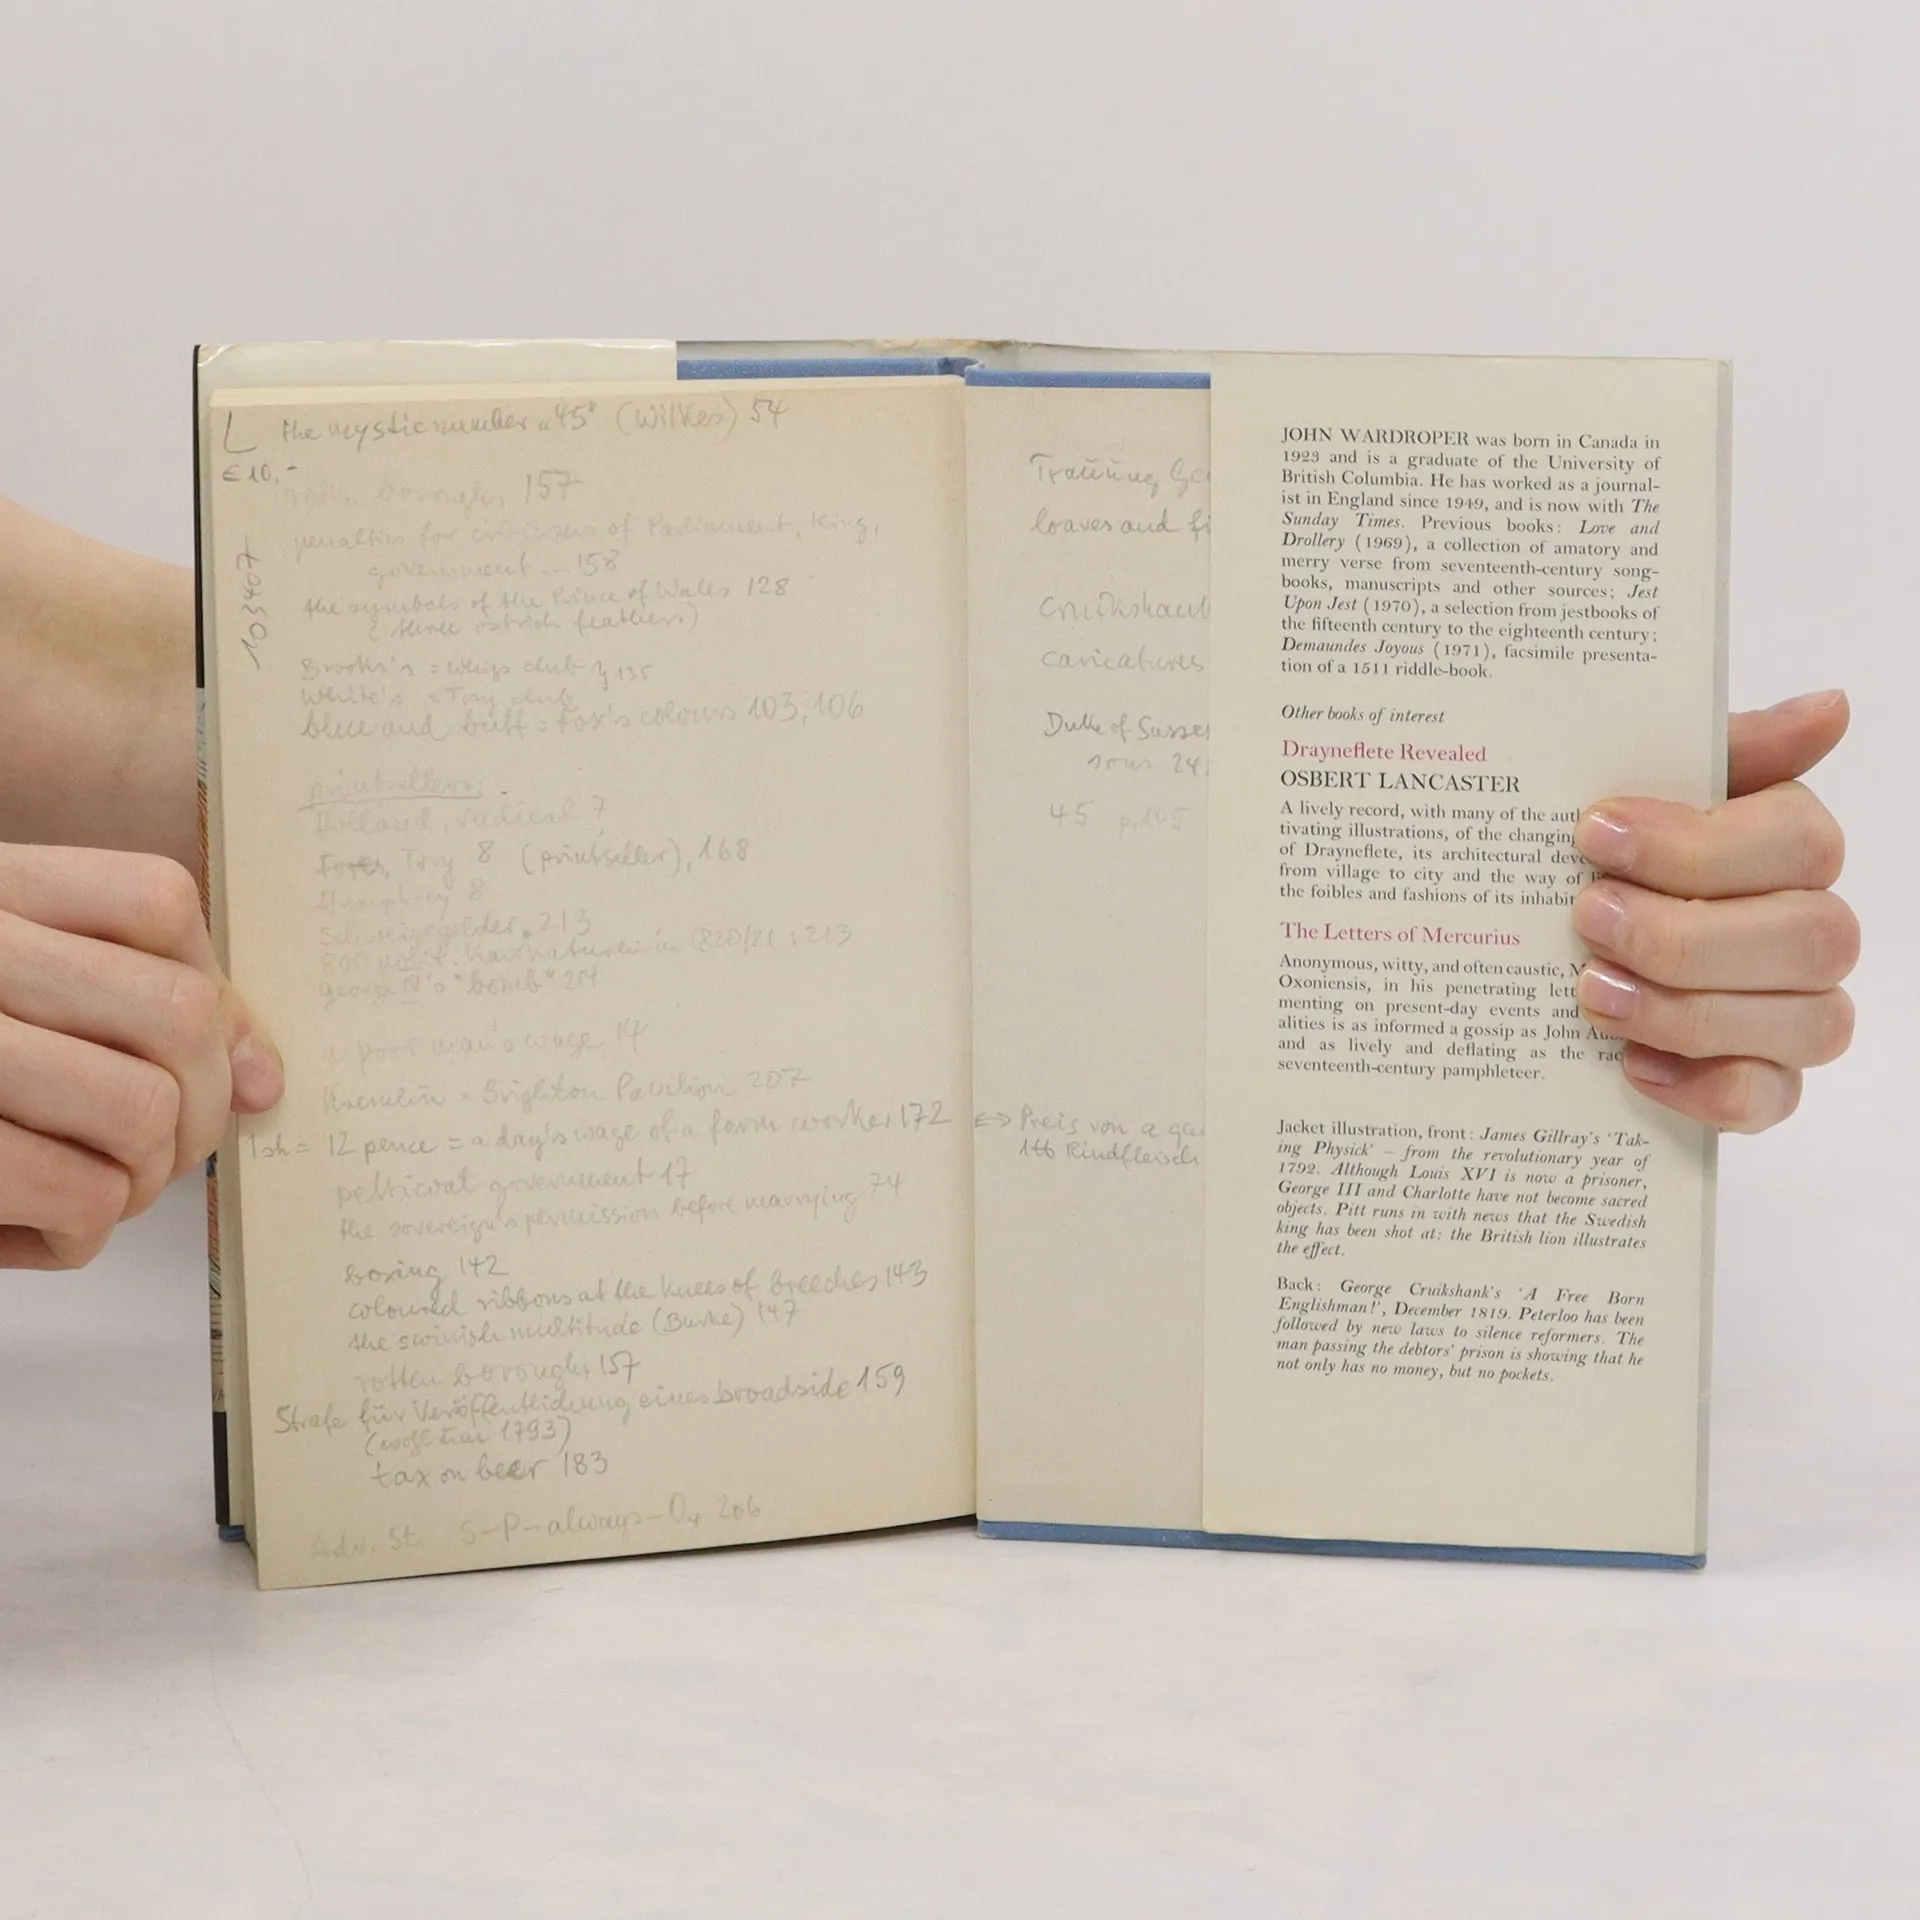 L the mystic number „45" (Wilkes) 54
€ 10,-
103407
rotten boroughs 157
penalties for criticizers of Parliament, King,
government ... 158
the symbols of the Prince of Wales 128
(three ostrich feathers)
Brooks's = whigs club 135
White's = Tory club
blue and buff = Fox's colours 103, 106
printsellers:
Holland, radical 7
Fores, Tory 8 (printseller), 168
Humphrey 8
Schweigegelder 213
800 polit. Karikaturen in 1820/21 : 213
george IV's "bomb" 214
a poor man's wage 14
Kremlin = Brighton Pavilion 207
1 sh = 12 pence = a day's wage of a farm worker 172
petticoat government 17
the sovereign's permission before marrying 74
boxing 142
coloured ribbons at the knees of breeches 143
the swinish multitude (Burke) 147
rotten boroughs 157
Strafe für Veröffentlichung eines broadside 159
(wohl um 1793)
tax on beer 183
Adv. St. S-P-always-O4 206
Trauung Ge
loaves and fi
Cruikshank
caricatures
Duke of Susse
sons 24
45 p. 105
⇔ Preis von a
1 lb Rindfleisch
JOHN WARDROPER was born in Canada in
1923 and is a graduate of the University of
British Columbia. He has worked as a journal-
ist in England since 1949, and is now with The
Sunday Times. Previous books: Love and
Drollery (1969), a collection of amatory and
merry verse from seventeenth-century song-
books, manuscripts and other sources; Jest
Upon Jest (1970), a selection from jestbooks of
the fifteenth century to the eighteenth century;
Demaundes Joyous (1971), facsimile presenta-
tion of a 1511 riddle-book.
Other books of interest
Drayneflete Revealed
OSBERT LANCASTER
A lively record, with many of the aut
tivating illustrations, of the changing
of Drayneflete, its architectural deve
from village to city and the way of
the foibles and fashions of its inhabit
The Letters of Mercurius
Anonymous, witty, and often caustic, M
Oxoniensis, in his penetrating lett
menting on present-day events and
alities is as informed a gossip as John Au
and as lively and deflating as the rac
seventeenth-century pamphleteer.
Jacket illustration, front: James Gillray's 'Tak-
ing Physick' – from the revolutionary year of
1792. Although Louis XVI is now a prisoner,
George III and Charlotte have not become sacred
objects. Pitt runs in with news that the Swedish
king has been shot at: the British lion illustrates
the effect.
Back: George Cruikshank's 'A Free Born
Englishman!', December 1819. Peterloo has been
followed by new laws to silence reformers. The
man passing the debtors' prison is showing that he
not only has no money, but no pockets.